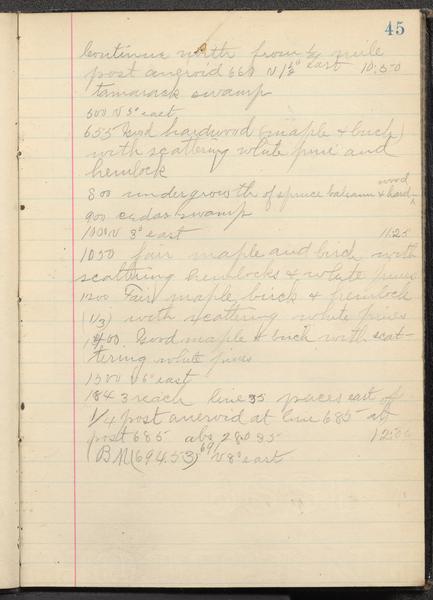 45
Continue north from 1/4 mile
post aneroid 660 N 1 1/2° east 10:50
tamarack swamp
500 N 5° east
655 Good hardwood (maple & birch)
with scattering white pine and
hemlock
800 undergrowth of spruce balsam & hardwood
900 cedar swamp
1000 N 3° east 11:25
1050 fair maple and birch with
scattering hemlocks & white pines
1200 Fair maple, birch & hemlock
(1/3) with scattering white pines
1400. Good maple & birch with scat-
tering white pines
1500 N 6° east
1843 reach line 35 paces east of
1/4 post aneroid at line 685 at
post 685 abs 28035
(B M (694.53) N 8° east